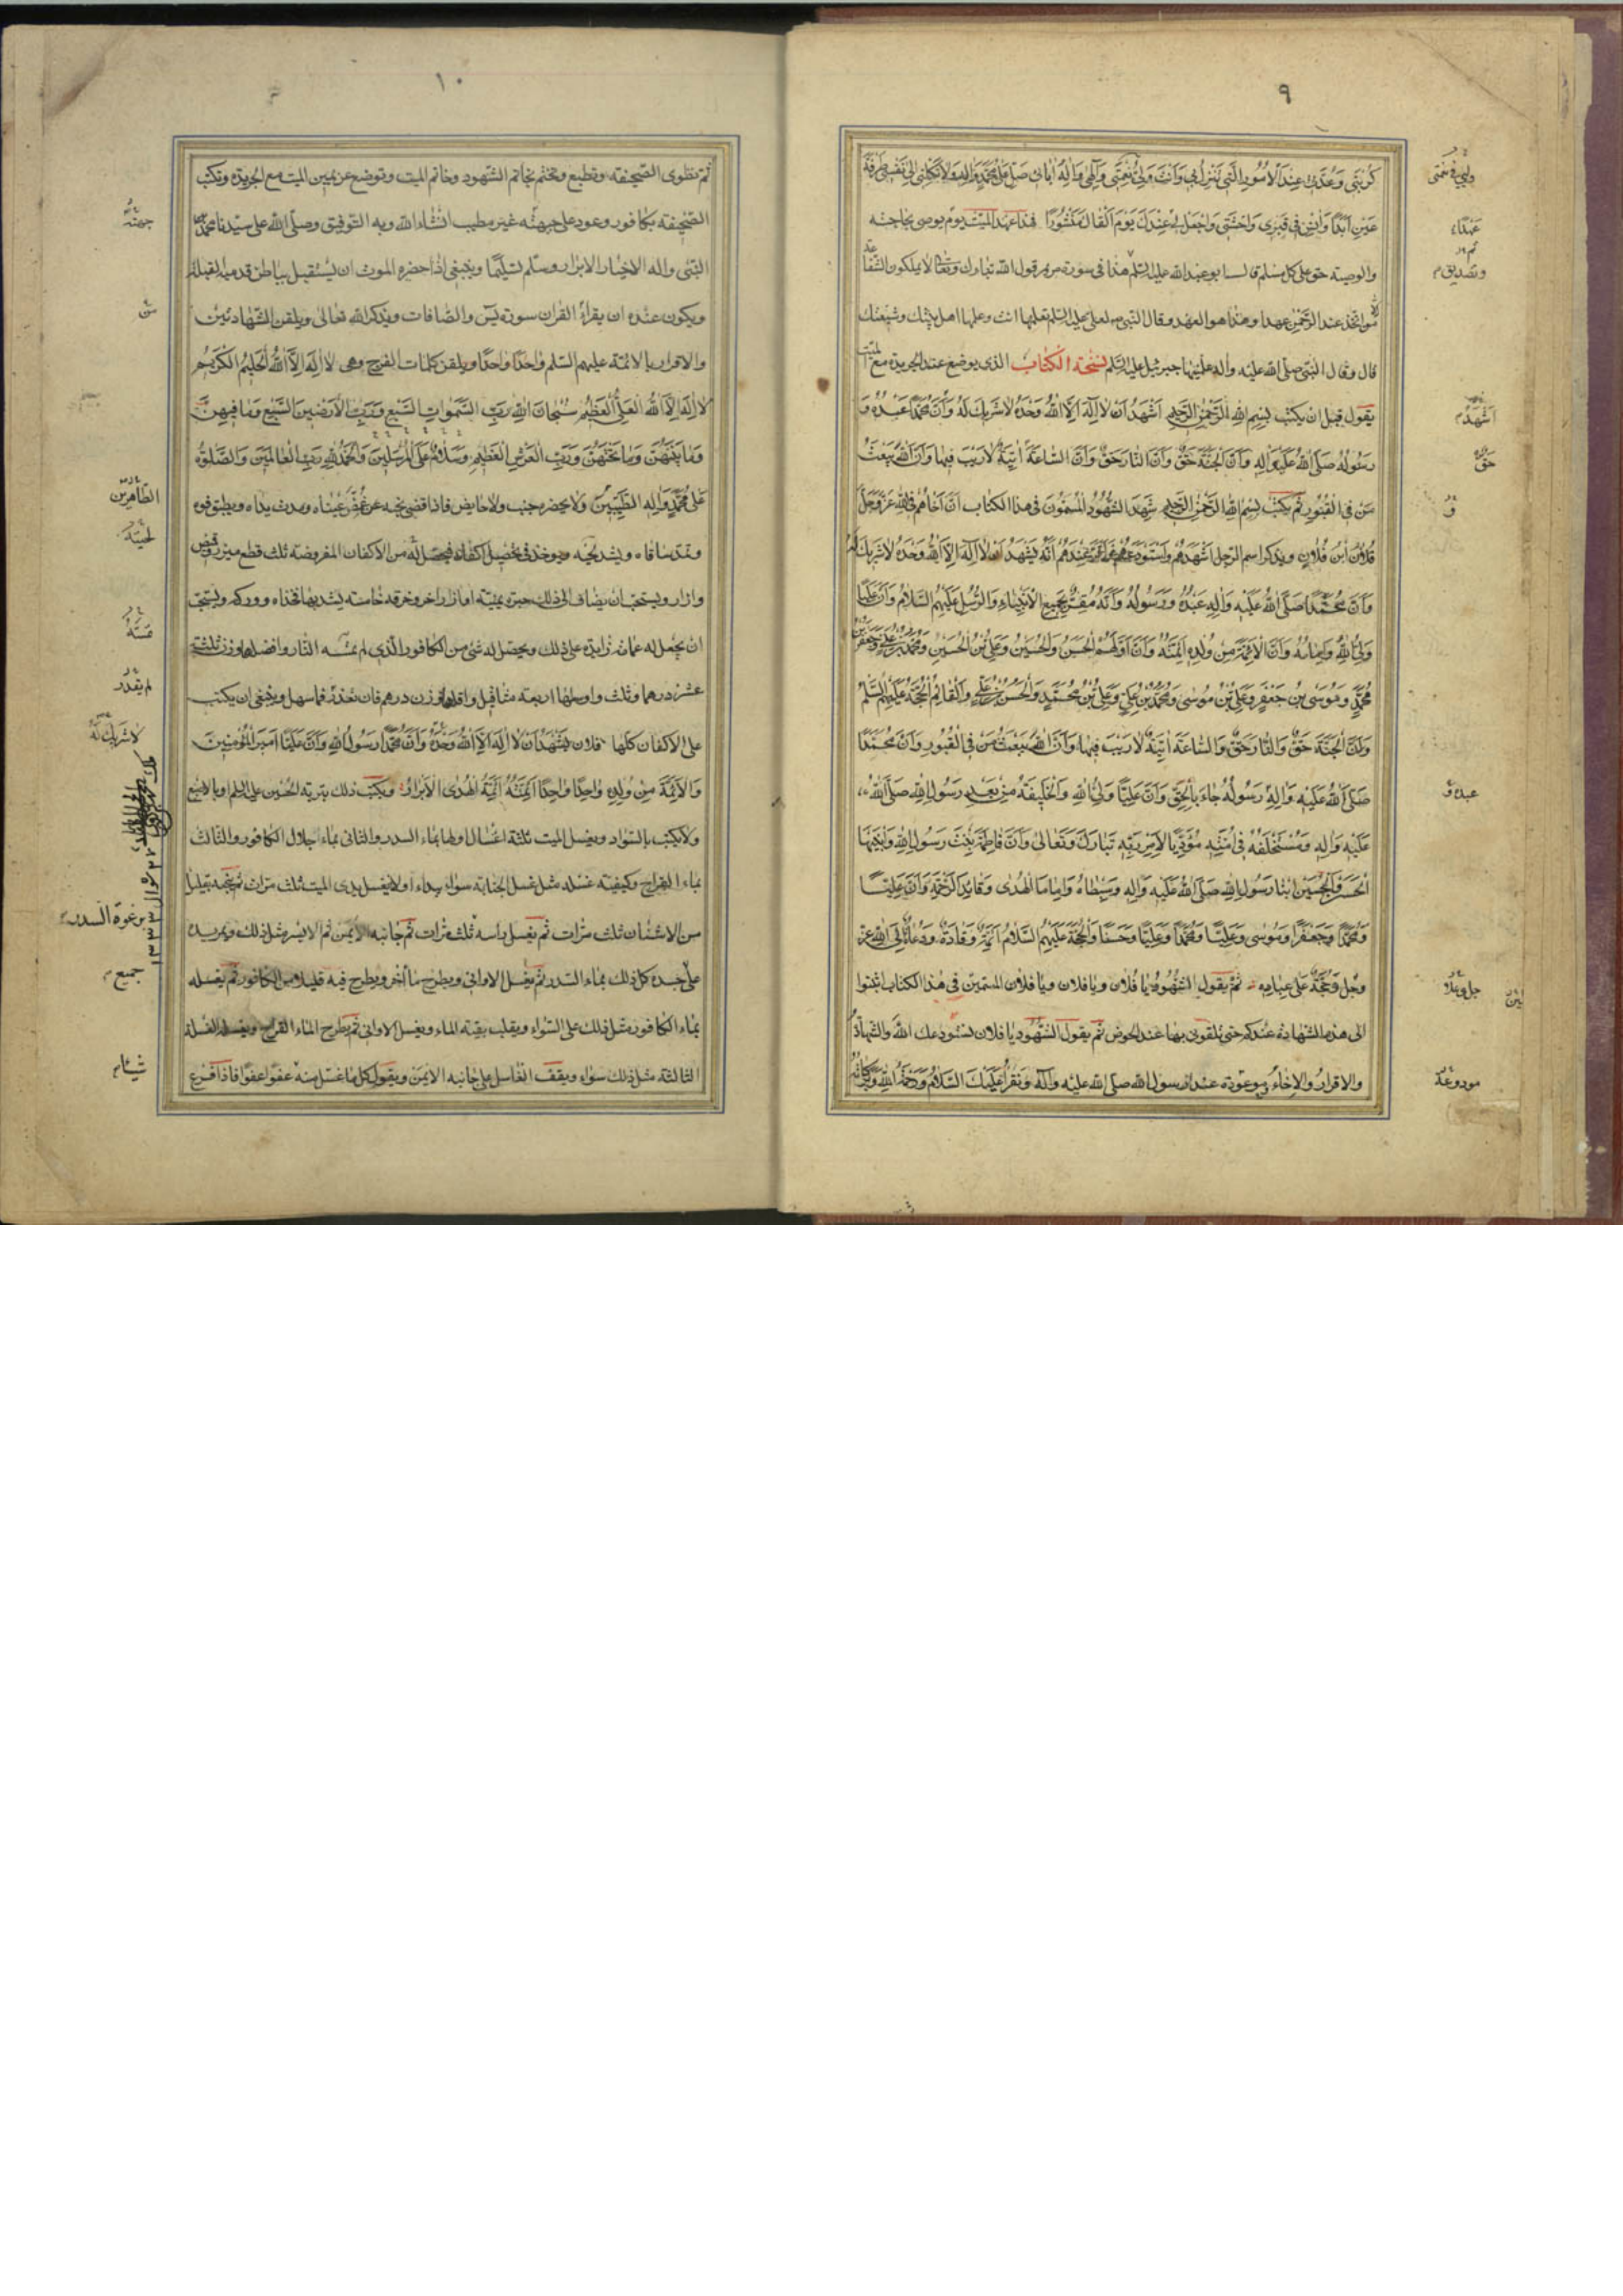 ٩
كُرْبَتِي وَعُدَّتِي عِنْدَ الْأُمُورِ الَّتِي تَنْزِلُ بِي وَأَنْتَ وَلِيُّ نِعْمَتِي وَإِلٰهِي وَإِلٰهُ آبَائِي صَلِّ عَلَى مُحَمَّدٍ وَآلِهِ وَلَا تَكِلْنِي إِلَى نَفْسِي طَرْفَةَ
عَيْنٍ أَبَدًا وَآنِسْ فِي قَبْرِي وَحْشَتِي وَاجْعَلْ لِي عِنْدَكَ يَوْمَ أَلْقَاكَ مَنْشُورًا فهذا عهد الميّت يوم يوصى بحاجته
والوصية حق على كل مسلم قال ابو عبد الله عليه السلم هذا فى سورة مريم قول الله تبارك وتعالى لا يملكون الشفاعة
من اتخذ عند الرحمن عهدا وهذا هو العهد وقال النبى ص لعلى عليه السلم تعلمها انت وعلمها اهل بيتك وشيعتك
قال وقال النبى صلّى الله عليه واله علّمنيها جبرئيل عليه السلم نسخة الكتاب الذى يوضع عند الجريدة مع الميت
يقول قبل ان يكتب بسم الله الرحمن الرحيم اشهد ان لا اله الا الله وحده لا شريك له وان محمدا عبده و
رسوله صلى الله عليه واله وان الجنة حق وان النار حق وان الساعة اتية لا ريب فيها وان الله يبعث
من في القبور ثم يكتب بسم الله الرحمن الرحيم شهد الشهود المسمون فى هذا الكتاب ان اخاهم فى الله عز وجل
فلان ابن فلان ويذكر اسم الرجل اشهدهم واستودعهم واقر عندهم انه يشهد ان لا اله الا الله وحده لا شريك له
وان محمدا صلى الله عليه واله عبده ورسوله وانه مقر بجميع الانبياء والرسل عليهم السلام وان عليا
ولى الله وامامه وان الائمة من ولده ائمته وان اولهم الحسن والحسين وعلي بن الحسين ومحمد بن علي وجعفر بن
محمد وموسى بن جعفر وعلي بن موسى ومحمد بن علي وعلي بن محمد والحسن بن علي والقائم الحجة عليهم السلم
وان الجنة حق والنار حق والساعة اتية لا ريب فيها وان الله يبعث من في القبور وان محمدا
صلى الله عليه واله رسوله جاء بالحق وان عليا ولي الله والخليفة من بعد رسول الله صلى الله
عليه واله ومستخلفه في امته مؤديا لامر ربه تبارك وتعالى وان فاطمة بنت رسول الله وابنيها
الحسن والحسين ابنا رسول الله صلى الله عليه واله وسبطاه واماما الهدى وقائدا الرحمة وان عليا
ومحمدا وجعفرا وموسى وعليا ومحمدا وعليا وحسنا والحجة عليهم السلام ائمة وقادة ودعاة الى الله عز
وجل وحجة على عباده ثم يقول للشهود يا فلان ويا فلان ويا فلان المسمين فى هذا الكتاب اثبتوا
لى هذه الشهادة عندكم حتى تلقونى بها عند الحوض ثم يقول الشهود يا فلان نستودعك الله والشهادة
والاقرار والاخاء موعودة عند رسول الله صلى الله عليه وآله ونقرأ عليك السلام ورحمة الله وبركاته
عهدًا
وتصديق
اشهد
حق
و
عبده و
جل وعلا
مودوعة
١٠
ثم تطوى الصحيفة وتطبع وتختم بخاتم الشهود وخاتم الميت وتوضع عن يمين الميت مع الجريدة وتكتب
الصحيفة بكافور وعود على جبهته غير مطيب انشاء الله وبه التوفيق وصلّى الله على سيّدنا محمد
النبى واله الاخيار الابرار وسلم تسليما وينبغى اذا حضره الموت ان يستقبل بباطن قدميه القبلة
ويكون عنده ان يقرأ القران سورة يس والصافات ويذكر الله تعالى ويلقن الشهادتين
والاقرار بالائمة عليهم السلم واحدا واحدا ويلقن كلمات الفرج وهى لا اله الا الله الحليم الكريم
لا اله الا الله العلي العظيم سبحان الله رب السموات السبع ورب الارضين السبع وما فيهن
وما بينهن وما تحتهن ورب العرش العظيم وسلام على المرسلين والحمد لله رب العالمين والصلوة
على محمد واله الطيبين ولا يحضره جنب ولا حايض فاذا قضى نحبه غمض عيناه ومدت يداه ويطبق فوه
وتمد ساقاه ويشد لحيه ويوخذ فى تحصيل اكفانه فيحصل له من الاكفان المفروضة ثلث قطع ميزر وقميص
وازار ويستحب ان يضاف الى ذلك حبرة يمنية او ازار اخر وخرقة خامسة يشد بها فخذاه ووركه ويستحب
ان يجعل له عمامة زايدة على ذلك ويحصل له شئ من الكافور الذى لم تمسه النار وافضله وزن ثلثة
عشر درهما وثلث واوسطها اربعة مثاقيل واقلها وزن درهم فان تعذر فما سهل وينبغى ان يكتب
على الاكفان كلها فلان يشهد ان لا اله الا الله وحده وان محمدا رسول الله وان عليا امير المؤمنين
والائمة من ولده واحدا واحدا ائمته ائمة الهدى الابرار ويكتب ذلك بتربة الحسين عليه السلم او بالاصبع
ولا يكتب بالسواد ويغسل الميت ثلثة اغسال اولها بماء السدر والثانى بماء جلال الكافور والثالث
بماء القراح وكيفية غسله مثل غسل الجنابة سواء يبداء اولا يغسل يدى الميت ثلث مرات ثم ينجيه بقليل
من الاشنان ثلث مرات ثم يغسل راسه ثلث مرات ثم جانبه الايمن ثم الايسر مثل ذلك ويمر يده
على جسده كل ذلك بماء السدر ثم يغسل الاوانى ويطرح ماء اخر ويطرح فيه قليلا من الكافور ثم يغسله
بماء الكافور مثل ذلك على السواء ويقلب بقية الماء ويغسل الاوانى ثم يطرح الماء القراح ويغسله الغسلة
الثالثة مثل ذلك سواء ويقف الغاسل على جانبه الايمن ويقول كل ما غسل منه عفوا عفوا فاذا فرغ
جبهته
الطاهرين
لحيته
لم يقدر
لا شريك له
من رغوة السدر
جميع
شيئا